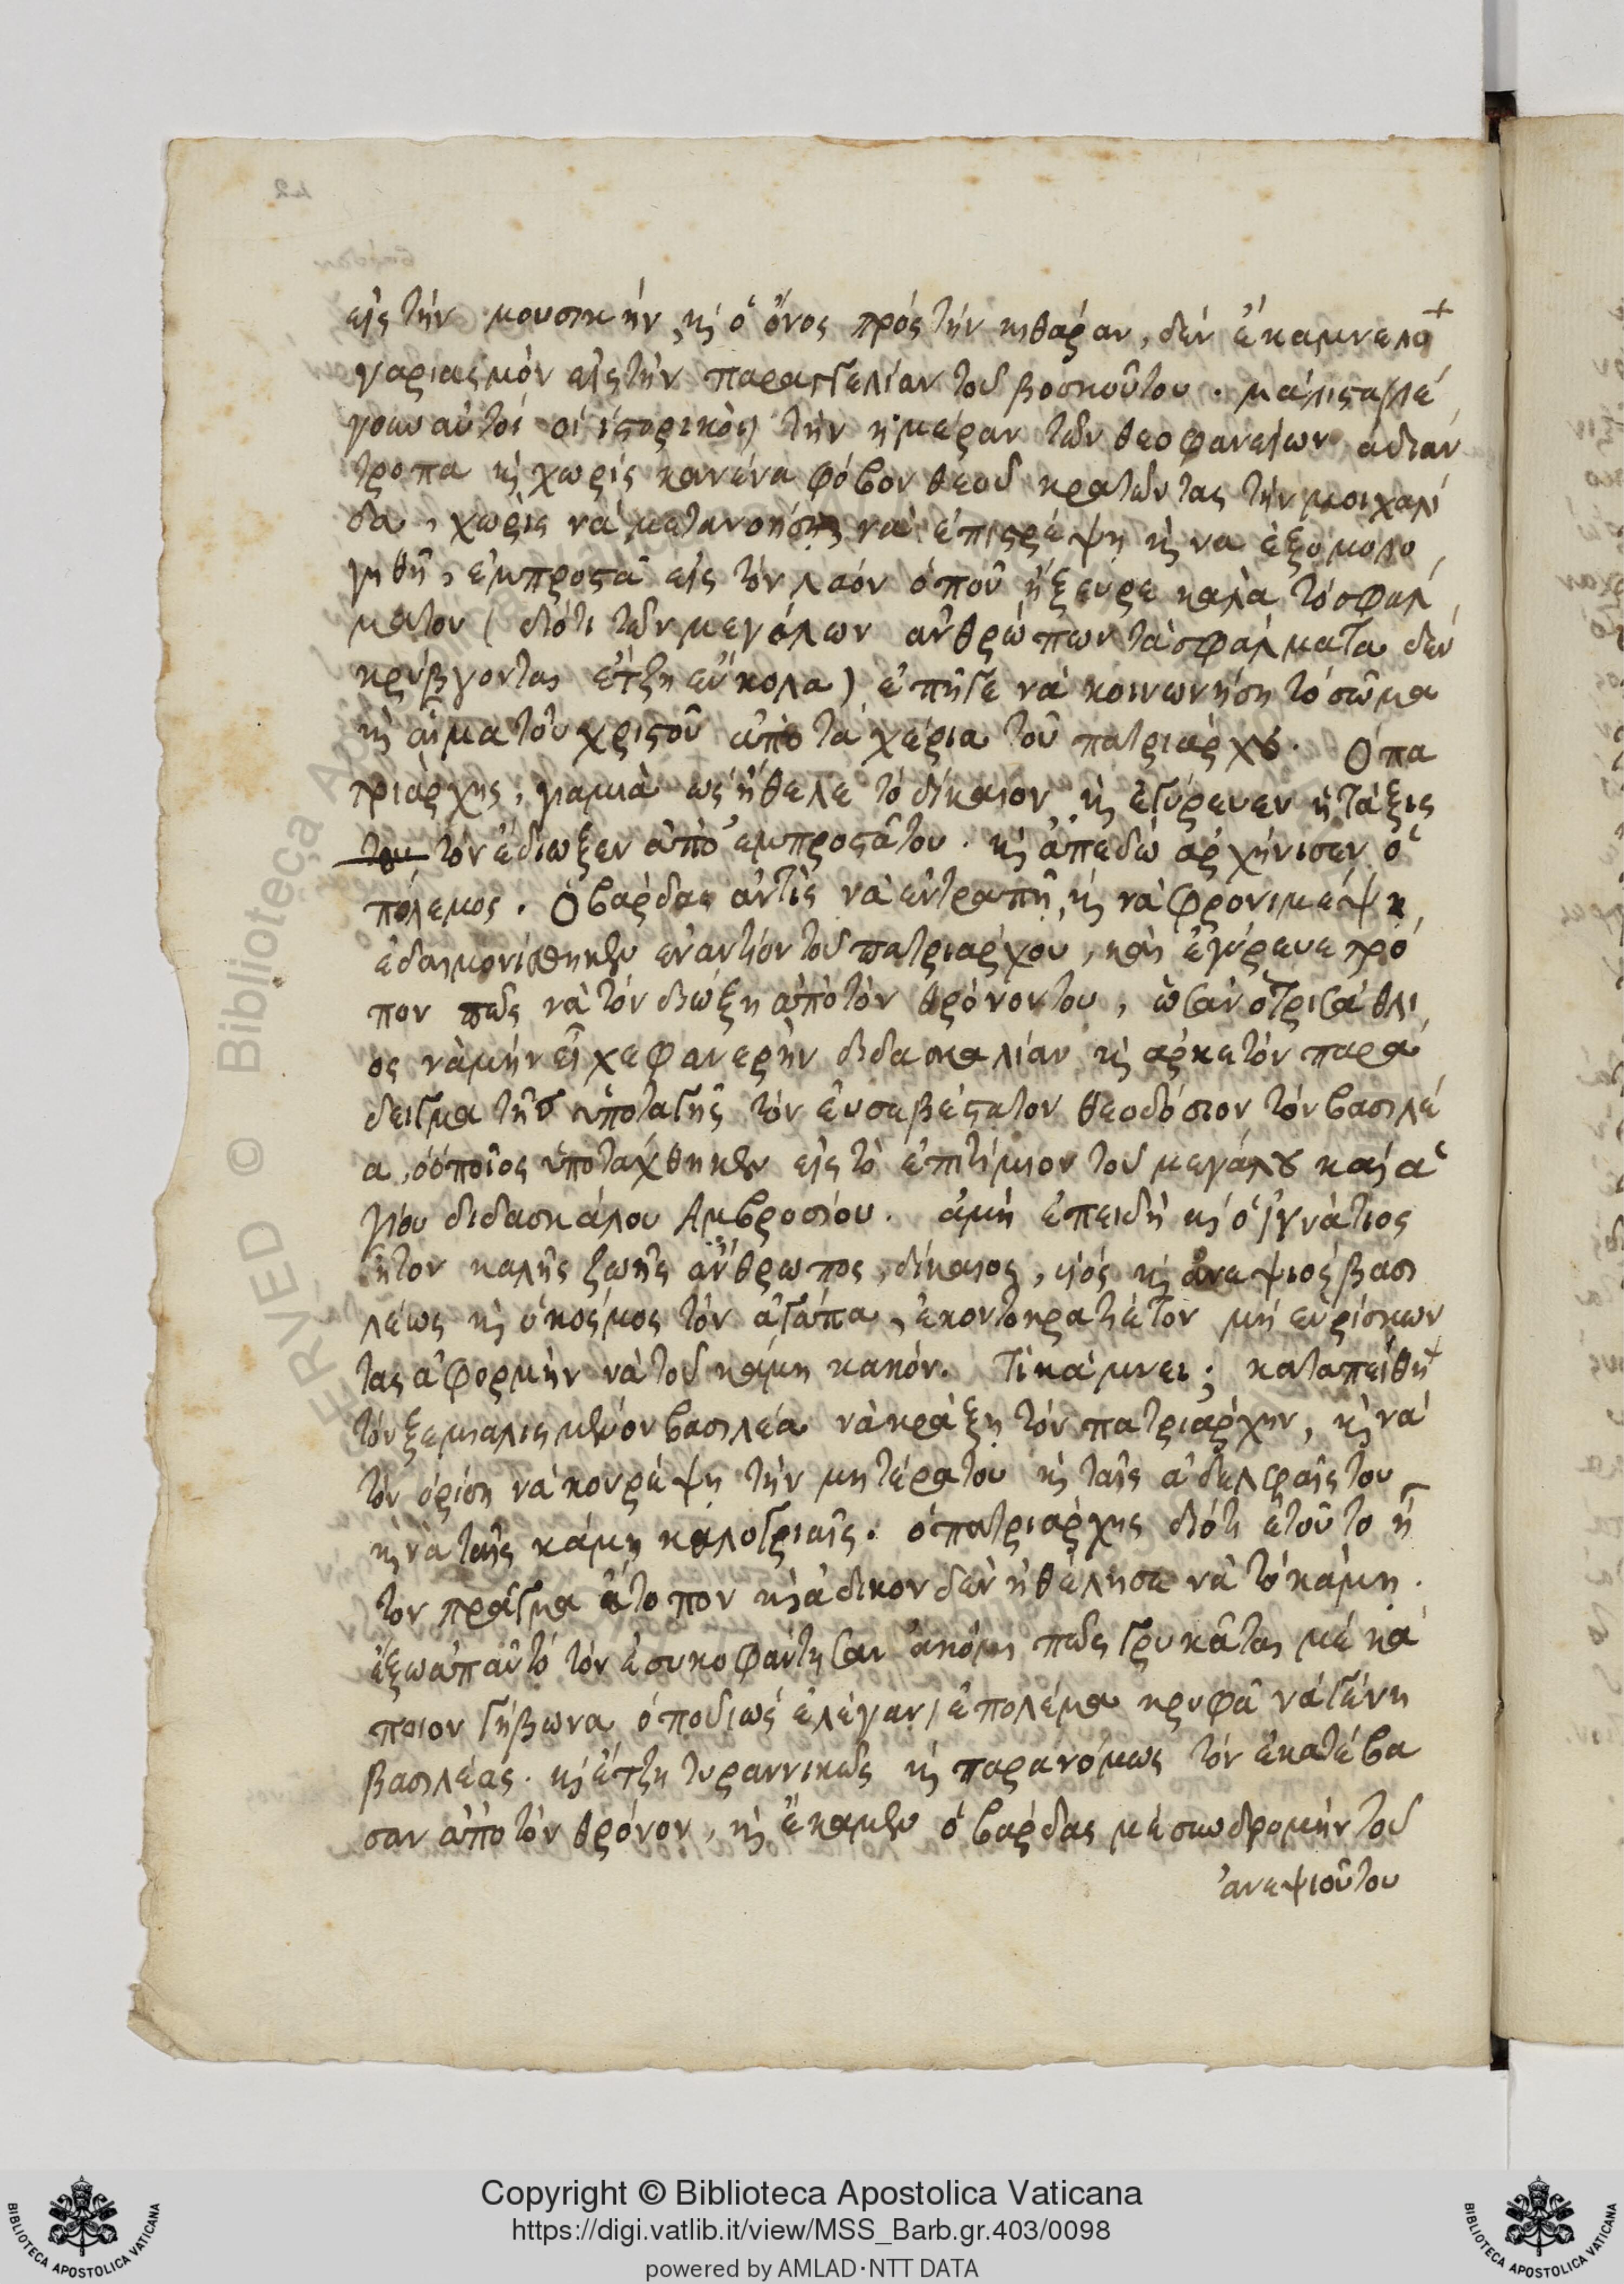 εἰς τὴν μουσικὴν, κὶ ὁ ὄνος πρὸς τὴν κιθάραν, δὲν ἔκαμνε λο
γαριασμὸν εἰς τὴν παραγγελίαν τοῦ βοσκοῦ του. μάλιστα λέ
γουν αὐτοὶ οἱ ἱστορικοὶ τὴν ἡμέραν τῶν θεοφανείων ἀδιάν
τροπα κὶ χωρὶς κανένα φόβον θεοῦ κρατῶντας τὴν μοιχαλί
δα, χωρὶς νὰ μετανοήσῃ νὰ ἐπιστρέψῃ κὶ να ἐξομολο
γηθῆ, ἐμπροστὰ εἰς τὸν λαὸν ὁποῦ ἤξευρε καλὰ τὸ σφάλ
μα του (διότι τῶν μεγάλων ἀνθρώπων τὰ σφάλματα δὲν
κρύβγονται ἔτζη εὔκολα) ἐπῆγε νὰ κοινωνήση τὸ σῶμα
κὶ αἷμα τοῦ χριστοῦ ἀπὸ τὰ χέρια τοῦ πατριάρχου. Ὁ πα
τριάρχης, γιαμιὰ ὡς ἤθελε τὸ δίκαιον κὶ ἐγύρευεν ἡ τάξις
του τὸν ἐδίωξεν ἀπὸ ἐμπροστά του. κὶ ἀπεδῶ ἀρχήνισεν ὁ
πόλεμος. Ὁ βάρδας ἀντὶς νὰ ἐντραπῆ, κὶ νὰ φρονιμέψη
ἐδαιμονίσθηκεν ἐναντίον τοῦ πατριάρχου, καὶ ἐγύρευε τρό
πον πῶς νὰ τὸν διώξη ἀπὸ τὸν θρόνον του, ὡσὰν ὁ τρισάθλι
ος νὰ μὴν εἶχε φανερὴν διδασκαλίαν κὶ ἀρκετὸν παρά
δειγμα τῆς ὑποταγῆς τὸν εὐσεβέστατον θεοδόσιον τὸν βασιλέ
α, ὁ ὁποῖος ὑποτάχθηκεν εἰς τὸ ἐπιτίμιον τοῦ μεγάλου καὶ ἁ
γίου διδασκάλου Ἀμβροσίου. ἀμὴ ἐπειδὴ κὶ ὁ ἰγνάτιος
ἦτον καλῆς ζωῆς ἄνθρωπος, δίκαιος, υἱὸς κὶ ἀνεψιὸς βασι
λέως κὶ ὁ κόσμος τὸν ἀγάπα, ἐκοντοκρατιέτον μὴ εὑρίσκων
τας ἀφορμὴν νὰ τοῦ κάμη κακόν. Τί κάμνει; καταπείθη
τὸν ξεμιαλισμένον βασιλέα νὰ κράξη τὸν πατριάρχην, κὶ νὰ
τὸν ὁρίση νὰ κουρέψη τὴν μητέρα του κὶ ταῖς ἀδελφαῖς του
κὶ νὰ ταῖς κάμη καλογριαῖς. ὁ πατριάρχης διότι ἐτοῦτο ἦ
τον πρᾶγμα ἄτοπον κὶ ἄδικον δὲν ἠθέλησε νὰ τὸ κάμη.
ἔξω ἀπ αὐτὸ τὸν ἐσυκοφάντησαν ἀκόμη πῶς γρυκᾶται μὲ κά
ποιον γήβωνα ὁποῦ ὡς ἐλέγαν, ἐπολέμα κρυφὰ νὰ γένη
βασιλέας. κὶ ἔτζη τυραννικῶς κὶ παρανόμως τὸν ἐκατέβα
σαν ἀπὸ τὸν θρόνον, κὶ ἔκαμεν ὁ βάρδας μὲ συνδρομὴν τοῦ
ἀνεψιοῦ του
Copyright © Biblioteca Apostolica Vaticana
https://digi.vatlib.it/view/MSS_Barb.gr.403/0098
powered by AMLAD·NTT DATA